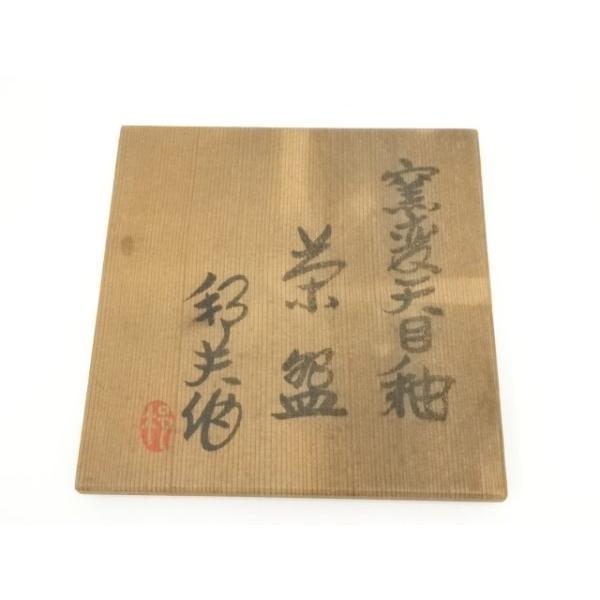 窯変天目釉
茶盌
邦夫作